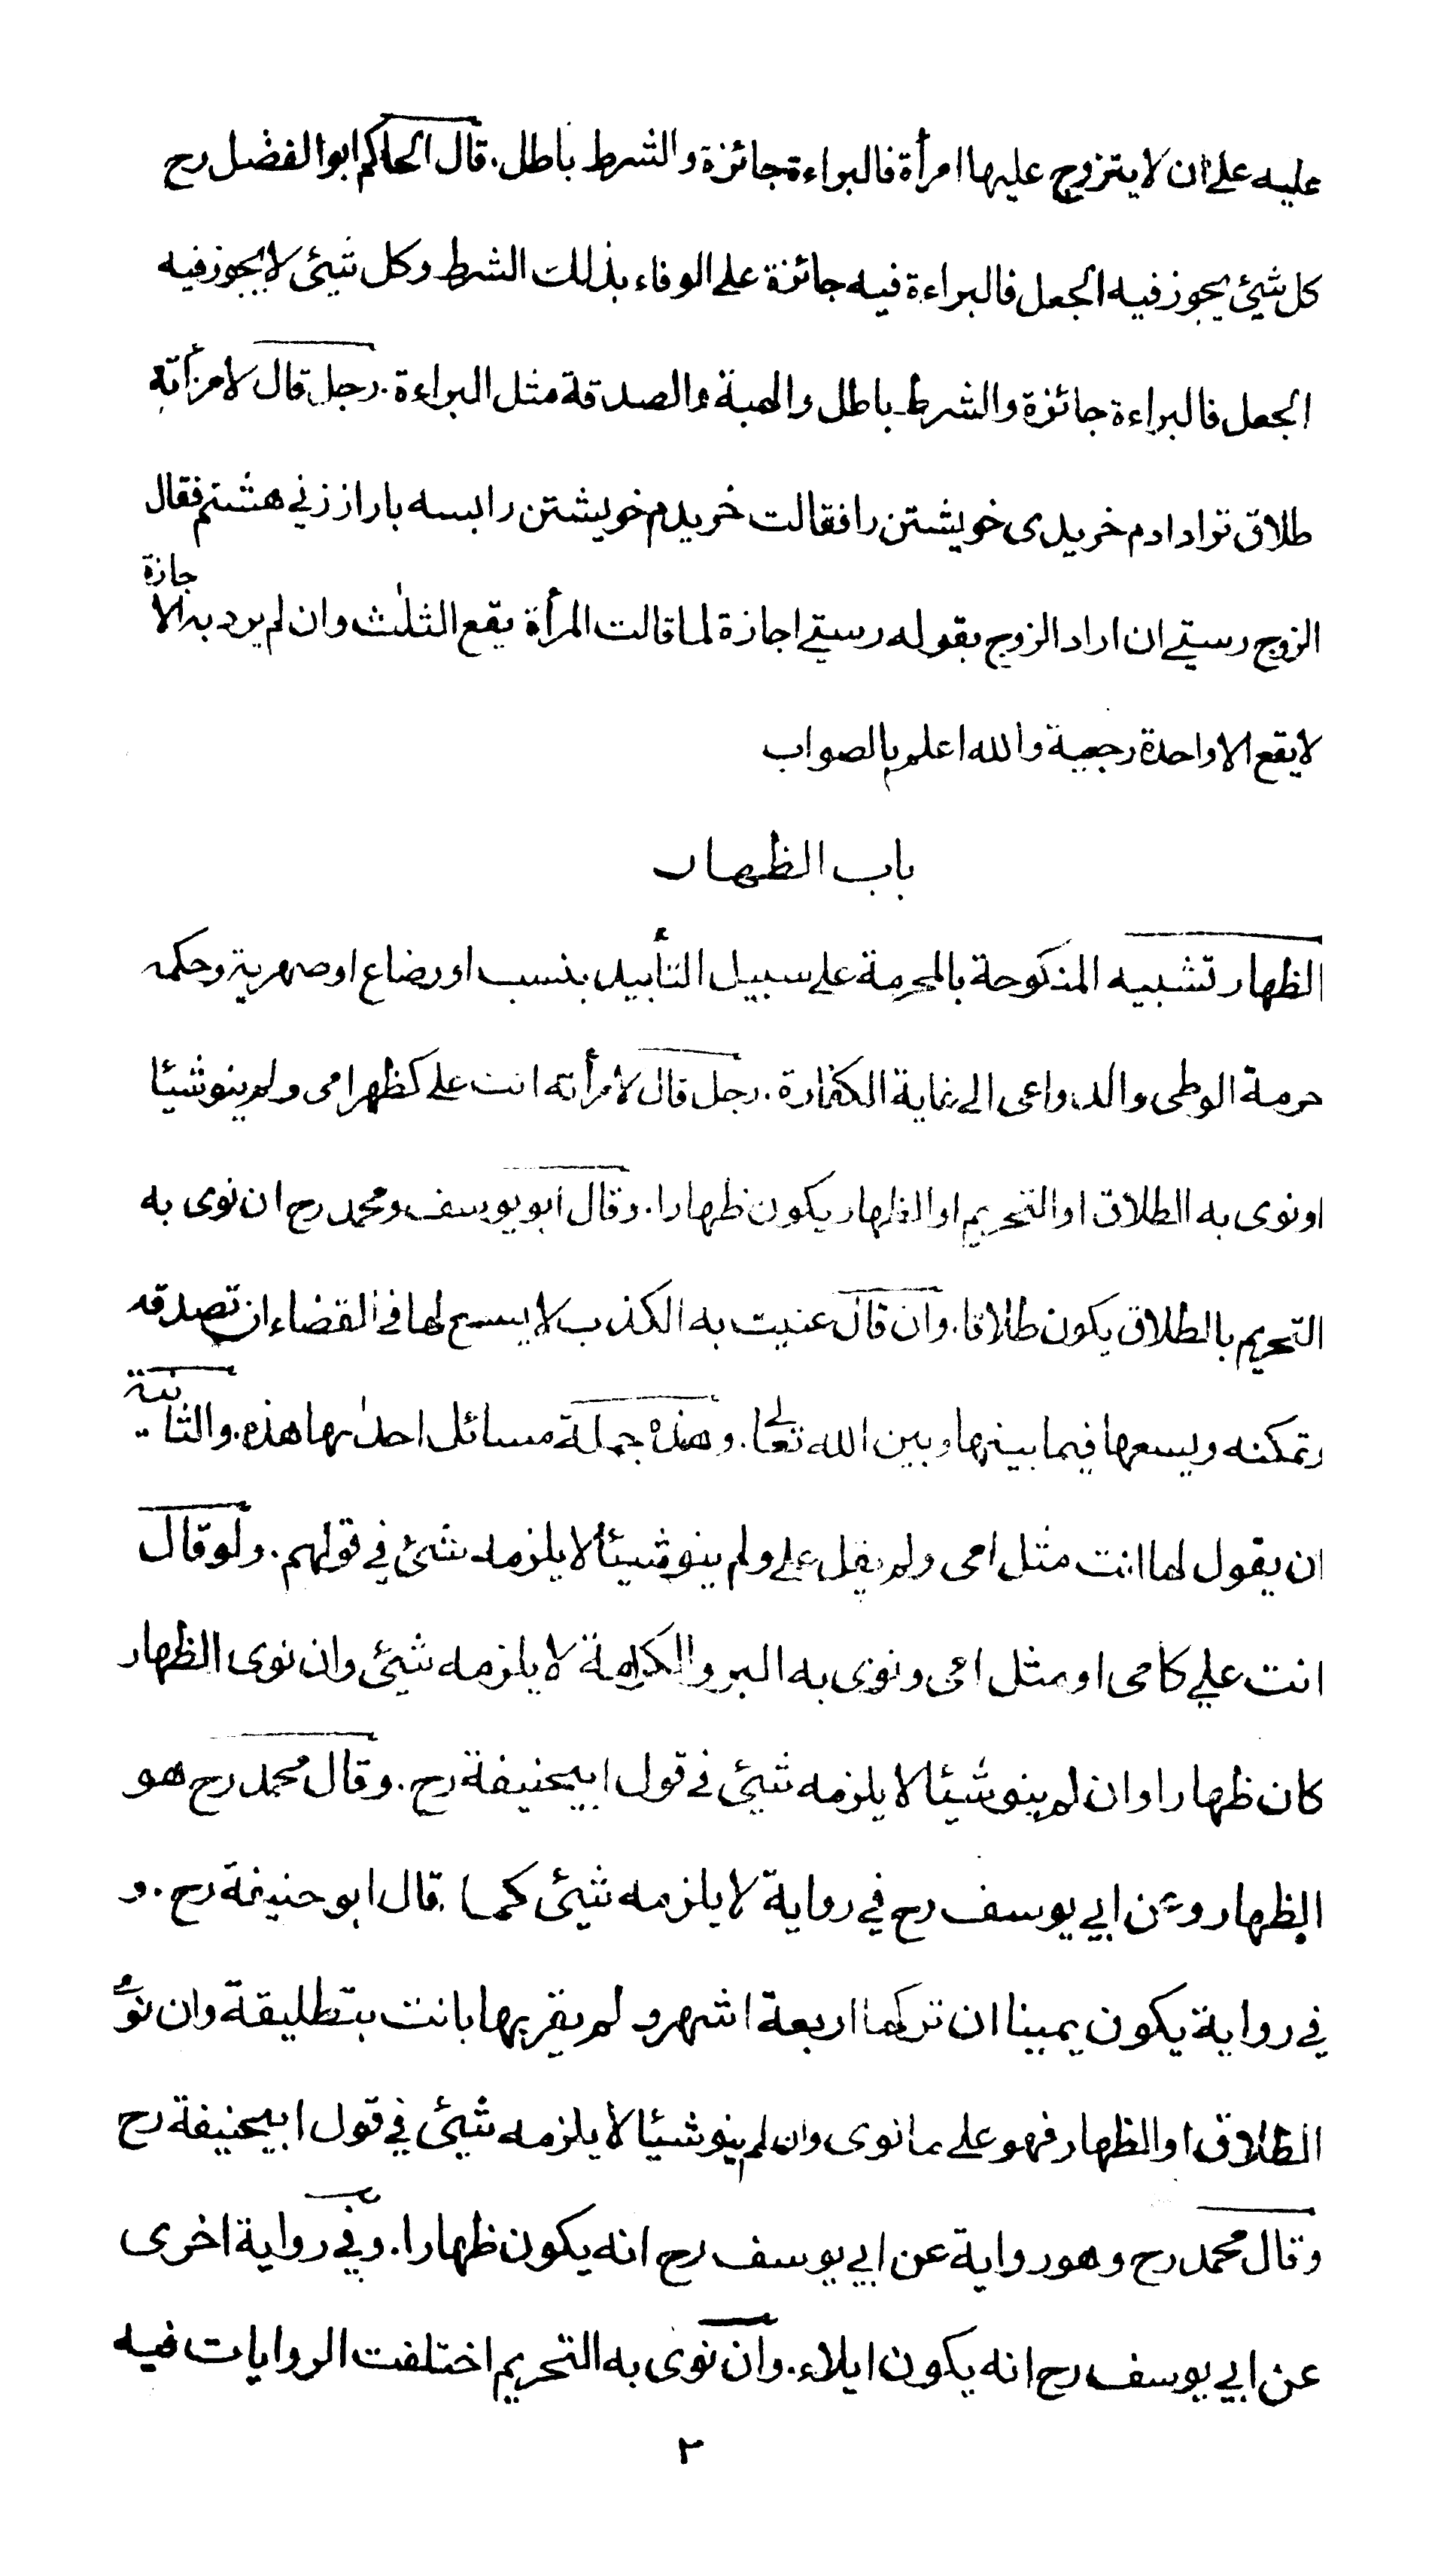 عليه على ان لا يتزوج عليها امرأة فالبراءة جائزة والشرط باطل. قال الحاكم ابو الفضل رح
كل شيئ يجوز فيه الجعل فالبراءة فيه جائزة على الوفاء بذلك الشرط وكل شيئ لا يجوز فيه
الجعل فالبراءة جائزة والشرط باطل والهبة والصدقة مثل البراءة. رجل قال لامرأته
طلاق ترا دادم خريدى خويشتن را فقالت خريدم خويشتن را بسه بار از زني هشتم فقال
الزوج رستي ان اراد الزوج بقوله رستي اجازة لما قالت المرأة يقع الثلٰث وان لم يرد به الاجازة
لا يقع الا واحدة رجعية والله اعلم بالصواب
باب الظهار
الظهار تشبيه المنكوحة بالمحرمة على سبيل التأبيد بنسب او رضاع او صهرية وحكمه
حرمة الوطى والدواعى الى غاية الكفارة. رجل قال لامرأته انت على كظهر امى ولم ينو شيئا
او نوى به الطلاق او التحريم او الظهار يكون ظهارا. وقال ابو يوسف ومحمد رح ان نوى به
التحريم بالطلاق يكون طلاقا. وان قال عنيت به الكذب لا يسع لها في القضاء ان تصدقه
وتمكنه ويسعها فيما بينها وبين الله تعالى. وهذه جملة مسائل احدٰيها هذه. والثانية
ان يقول لها انت مثل امى ولم يقل على ولم ينو شيئا لا يلزمه شئ في قولهم. ولو قال
انت علي كامى او مثل امى ونوى به البر والكرامة لا يلزمه شيئ وان نوى الظهار
كان ظهارا وان لم ينو شيئا لا يلزمه شيئ في قول ابيحنيفة رح. وقال محمد رح هو
الظهار وعن ابي يوسف رح في رواية لا يلزمه شيئ كما قال ابو حنيفة رح. و
في رواية يكون يمينا ان تركها اربعة اشهر ولم يقربها بانت بتطليقة وان نوى
الطلاق او الظهار فهو على ما نوى وان لم ينو شيئا لا يلزمه شيئ في قول ابيحنيفة رح
وقال محمد رح وهو رواية عن ابي يوسف رح انه يكون ظهارا. وفي رواية اخرى
عن ابي يوسف رح انه يكون ايلاء. وان نوى به التحريم اختلفت الروايات فيه
٢